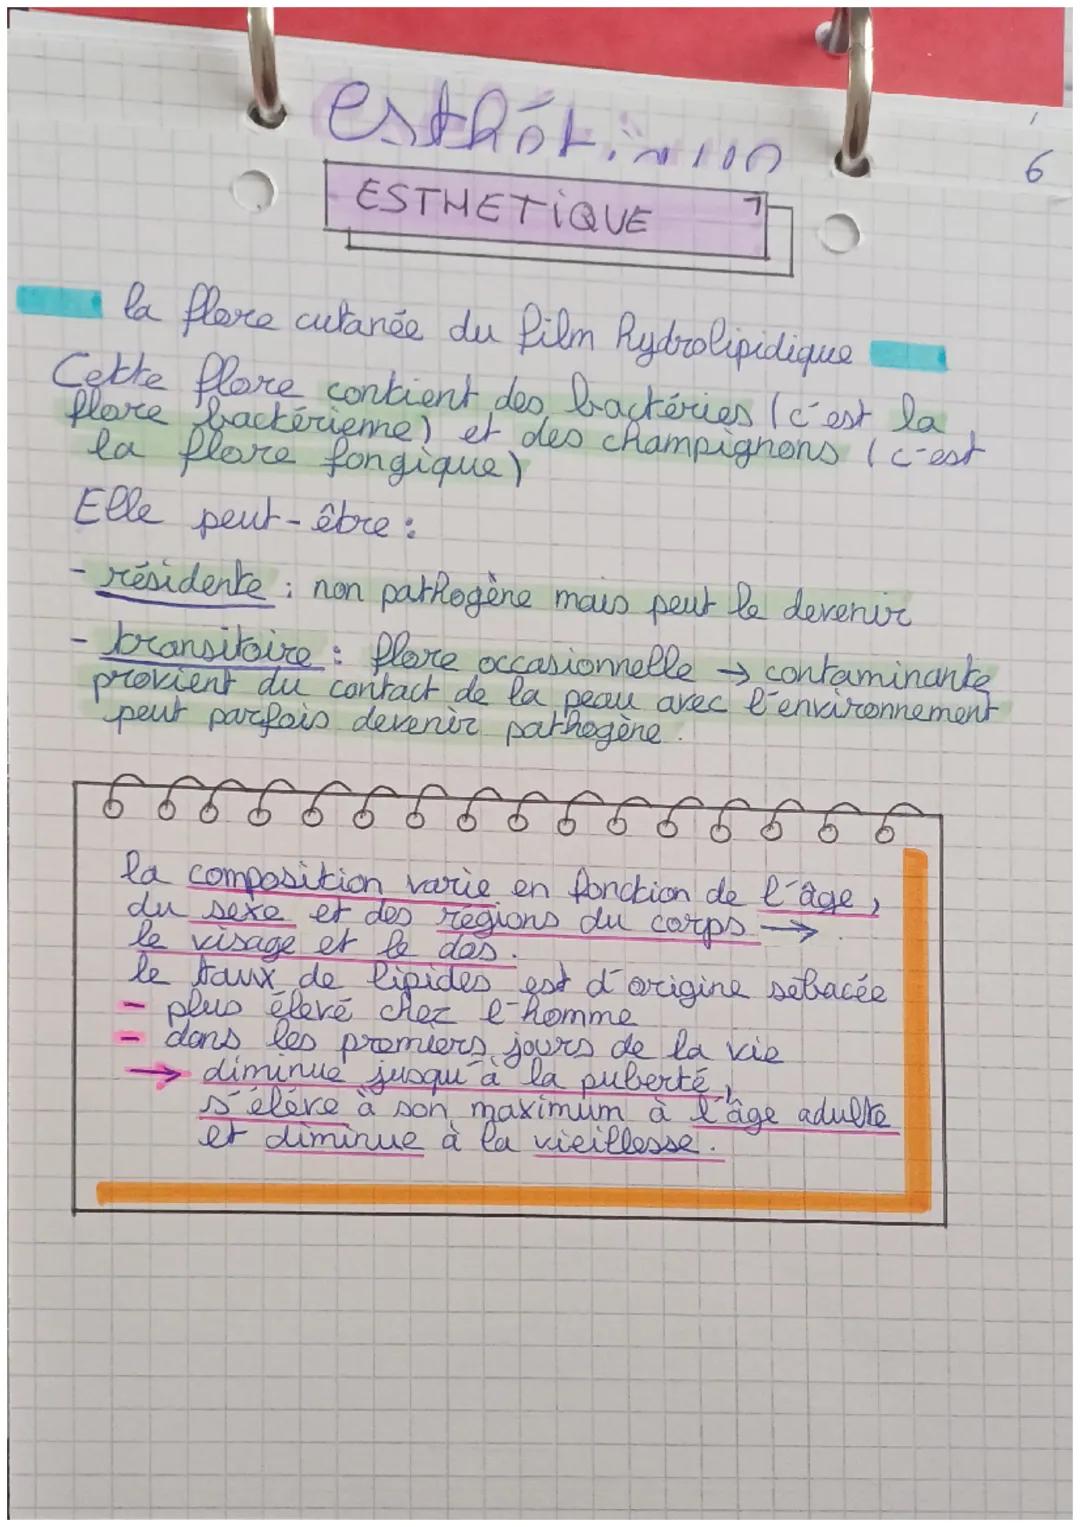 esthétique
6
ESTHETIQUE 7
la flore cutanée du film hydrolipidique
Cette flore contient des bactéries (c'est la
flore bactérienne) et des champignons (c'est
la flore fongique)
Elle peut-être :
- résidente : non pathogène mais peut le devenir
- transitoire : flore occasionnelle → contaminante
provient du contact de la peau avec l'environnement
peut parfois devenir pathogène.
la composition varie en fonction de l'âge,
du sexe et des regions du corps →
le visage et le dos.
le taux de lipides est d'origine sébacée
- plus élevé chez l'homme
- dans les premiers jours de la vie
→ diminue jusqu'à la puberté,
s'élève à son maximum à l'âge adulte
et diminue à la vieillesse.